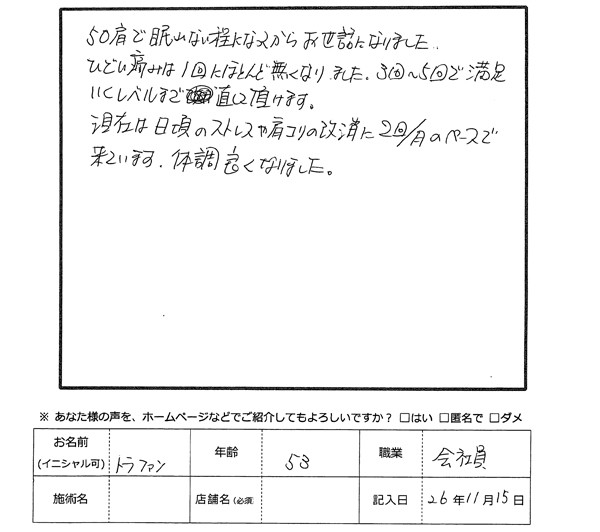 50肩で眠れない程になってからお世話になりました。
ひどい痛みは1回にほとんど無くなりました。3回〜5回で満足
いくレベルまで直して頂けます。
現在は日頃のストレスや肩コリの改消に2回/月のペースで
来ています。体調良くなりました。
※ あなた様の声を、ホームページなどでご紹介してもよろしいですか? □はい □匿名で □ダメ
お名前(イニシャル可) トラファン 年齢 53 職業 会社員
施術名 店舗名(必須) 記入日 26年11月15日